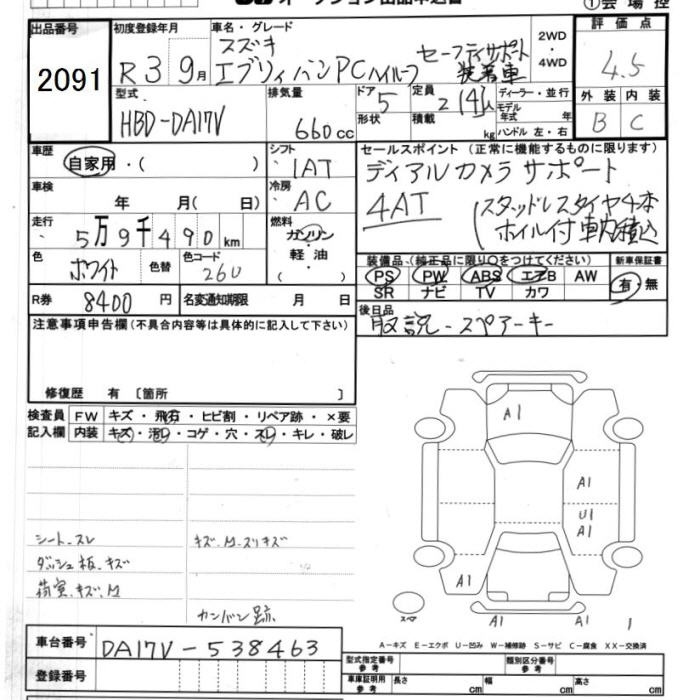 オークション出品申込書
①会場控
出品番号 初度登録年月 車名・グレード 2WD・4WD 評価点
2091 R3 9月 スズキ エブリイバンPCハイルーフ セーフティサポート装着車 4.5
型式 排気量 ドア 定員 ディーラー・並行 外装 内装
HBD-DA17V 660cc 5 2(4)人 モデル年式 年 B C
形状 積載 kg ハンドル 左・右
車歴 シフト セールスポイント (正常に機能するものに限ります)
自家用・( ) IAT ディアルカメラサポート
車検 年 月( 日) 冷房 AC 4AT (スタッドレスタイヤ4本
走行 5万9千490km 燃料 ガソリン・軽油・ ホイル付 車内積込
色 ホワイト 色替 色コード 26U 装備品 (純正品に限り○をつけてください) 新車保証書
PS PW ABS エアB AW 有・無
SR ナビ TV カワ
R券 8400円 名変通知期限 月 日 後日品
取説-スペアーキー
注意事項申告欄(不具合内容等は具体的に記入して下さい)
修復歴 有 〔箇所 〕
検査員 FW キズ・飛石・ヒビ割・リペア跡・×要
記入欄 内装 キズ・汚れ・コゲ・穴・スレ・キレ・破レ
A1
A1
U1
A1
シート、スレ キズ、M、スリキズ
ダッシュ板、キズ
荷室、キズ、M A1
カンバン跡 スペア A1 A1 1
A-キズ E-エクボ U-凹み W-補修跡 S-サビ C-腐食 XX-交換済
車台番号 DA17V-538463
型式指定番号 参考 類別区分番号 参考
登録番号 車庫証明用 参考 長さ cm 幅 cm 高さ cm